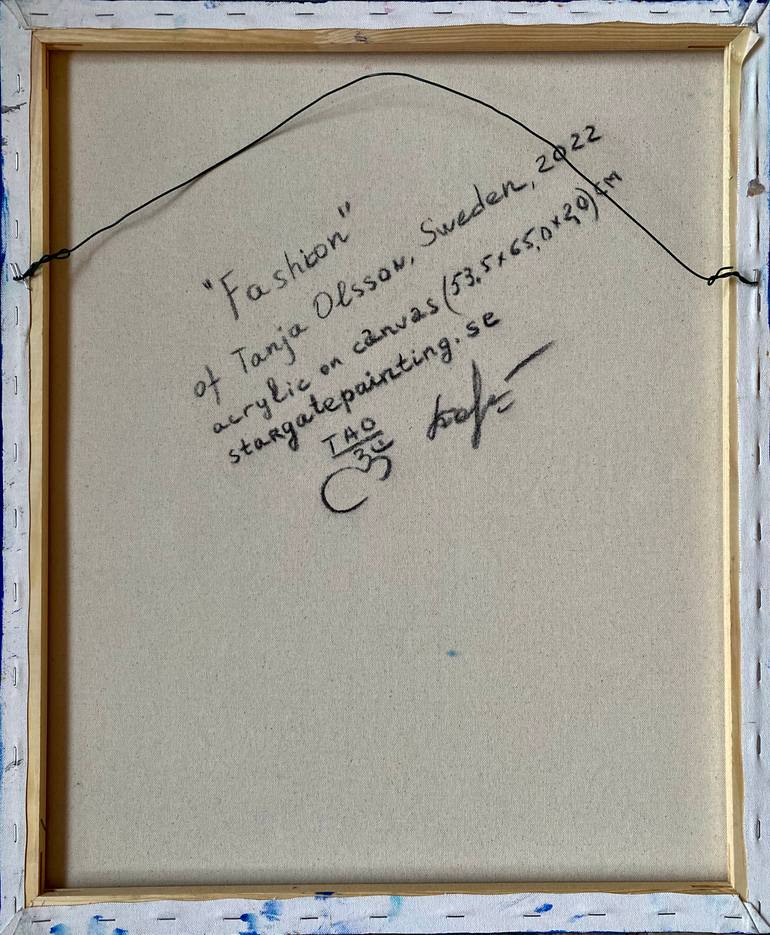 "Fashion"
of Tanja Olsson, Sweden, 2022
acrylic on canvas (53,5x65,0x2,0) cm
stargatepainting.se
TAO